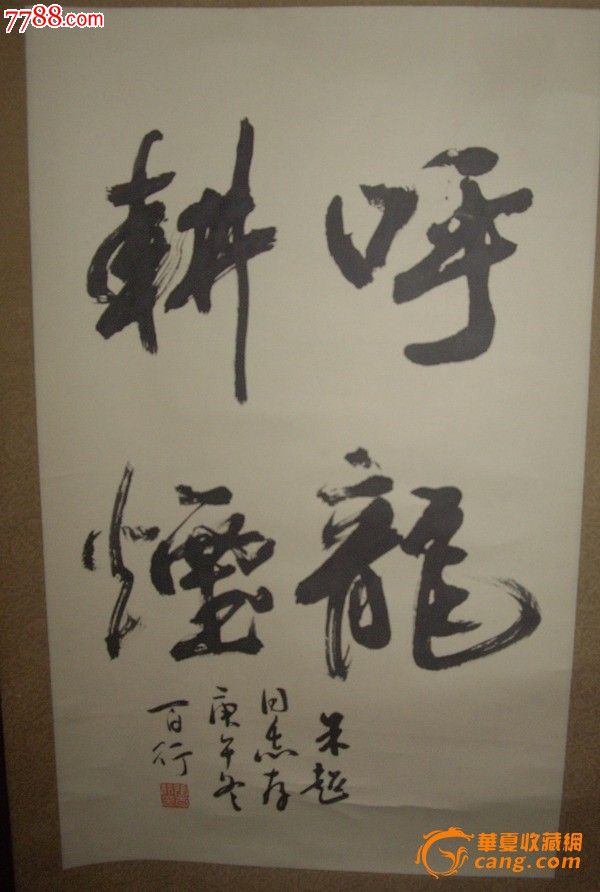 7788.com
呼龍
耕煙
朱超
同志存
庚午冬
百行
華夏收藏網
cang.com